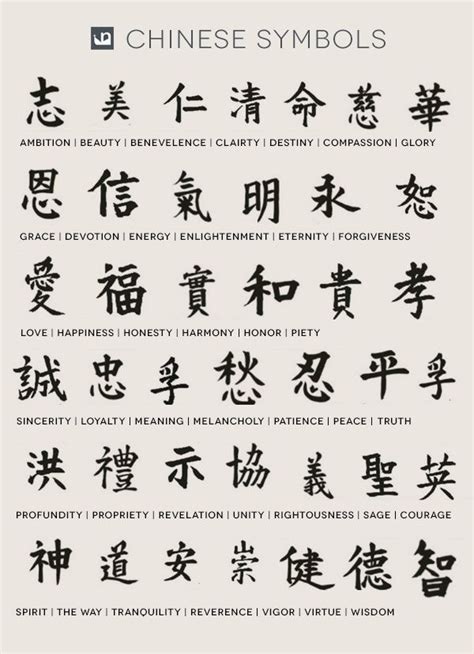 CHINESE SYMBOLS
志 美 仁 清 命 慈 華
AMBITION | BEAUTY | BENEVELENCE | CLAIRTY | DESTINY | COMPASSION | GLORY
恩 信 氣 明 永 恕
GRACE | DEVOTION | ENERGY | ENLIGHTENMENT | ETERNITY | FORGIVENESS
愛 福 實 和 貴 孝
LOVE | HAPPINESS | HONESTY | HARMONY | HONOR | PIETY
誠 忠 孚 愁 忍 平 孚
SINCERITY | LOYALTY | MEANING | MELANCHOLY | PATIENCE | PEACE | TRUTH
洪 禮 示 協 義 聖 英
PROFUNDITY | PROPRIETY | REVELATION | UNITY | RIGHTOUSNESS | SAGE | COURAGE
神 道 安 崇 健 德 智
SPIRIT | THE WAY | TRANQUILITY | REVERENCE | VIGOR | VIRTUE | WISDOM